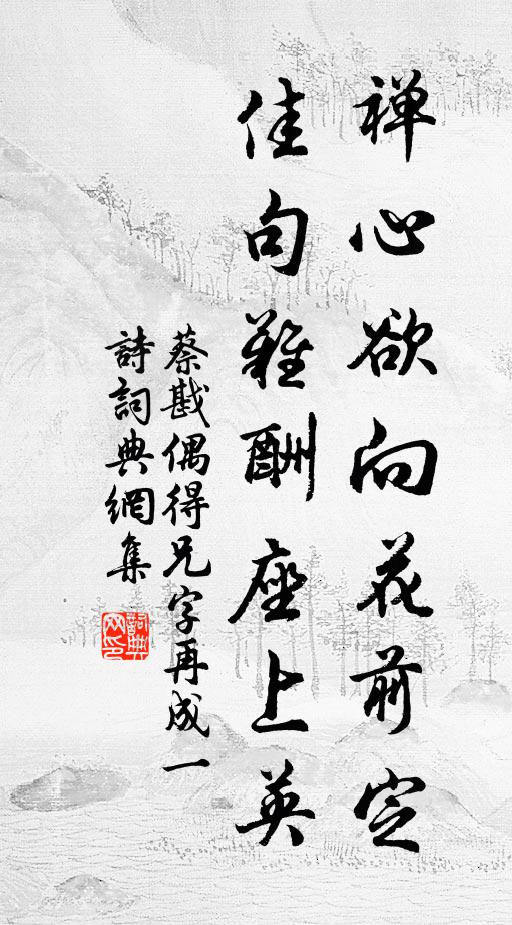 禅心欲向花前定
佳句難酬座上英
蔡戡偶得兄字再成一
詩詞典網集
詞典網印